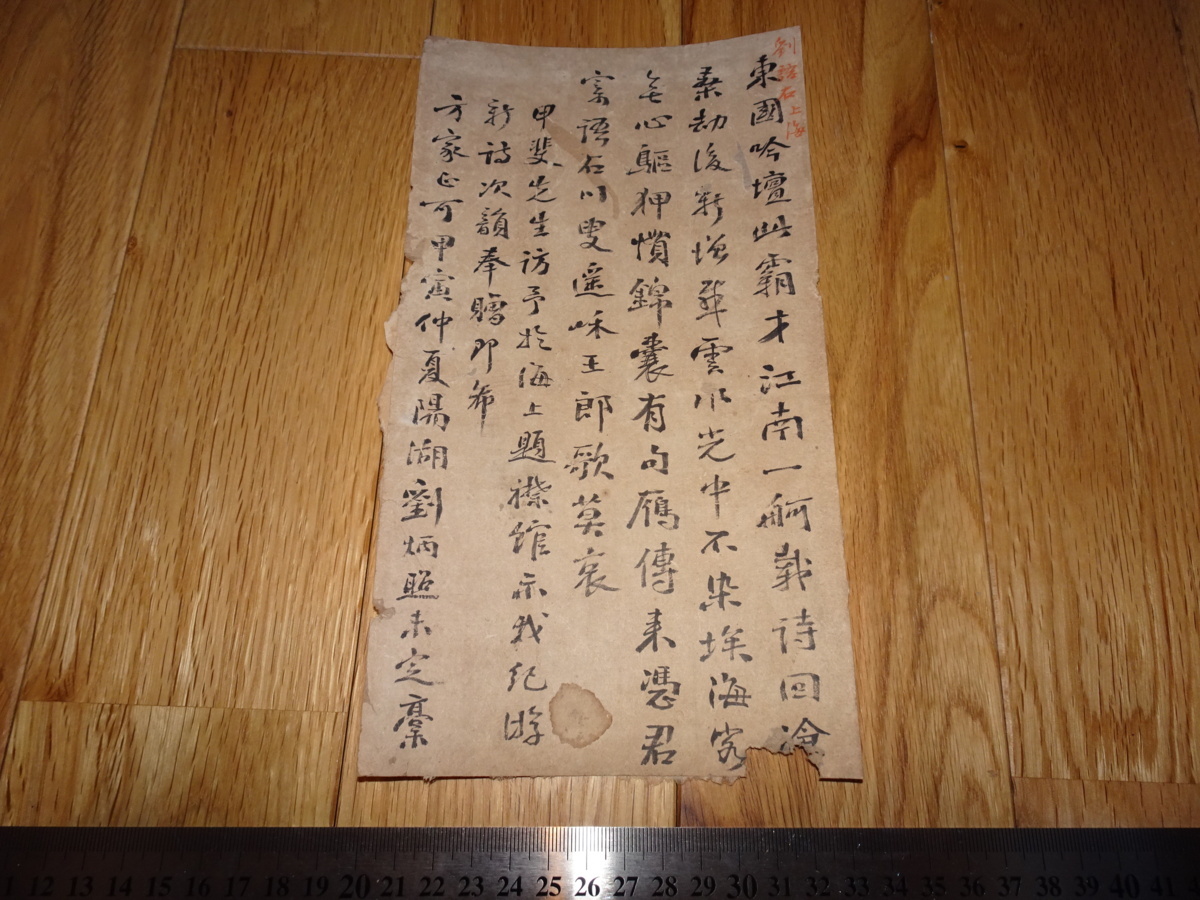 劉語石上海
東國吟壇此霸才江南一舸載詩回滄
桑劫後新增雲水光中不染埃海客
無心鷗狎慣錦囊有句雁傳来憑君
寄語石川叟遥咊王郎歌莫哀
甲斐先生訪予於海上題襟館示我紀游
新詩次韻奉贈即希
方家正可甲寅仲夏陽湖劉炳照未定稾
11 12 13 14 15 16 17 18 19 20 21 22 23 24 25 26 27 28 29 30 31 32 33 34 35 36 37 38 39 40 41